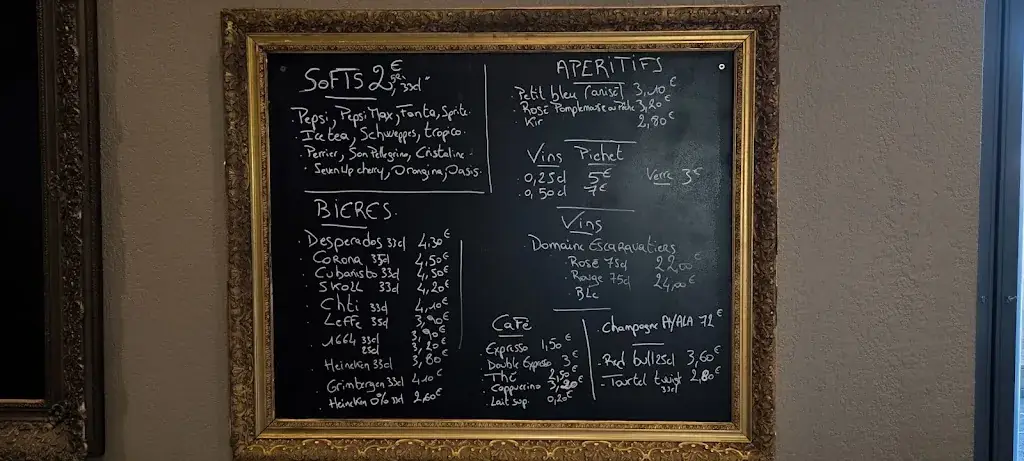 SOFTS 2,50€ 33cl
Pepsi, Pepsi Max, Fanta, Sprite.
Ice tea, Schweppes, tropico.
Perrier, San Pellegrino, Cristaline.
Seven Up cherry, Orangina, Oasis.
BIERES.
. Desperados 33cl 4,30€
. Corona 35cl 4,50€
. Cubanisto 33cl 4,50€
. SKOLL 33cl 4,20€
. Chti 33cl 4,10€
. Leffe 33cl 3,90€
. 1664 33cl 3,90€
25cl 3,20€
. Heineken 33cl 3,80€
. Grimbergen 33cl 4,10€
. Heineken 0% 33cl 2,60€
APERITIFS
. Petit bleu (anise) 3,10€
. Rosé Pamplemousse ou Pêche 3,20€
. Kir 2,80€
Vins Pichet
. 0,25cl 5€ Verre 3€
. 0,50cl 7€
Vins
. Domaine Escaravatiers
. Rosé 75cl 22,00€
. Rouge 75cl 24,00€
. BLc
Café
. Expresso 1,50€
. Double Expresso 3€
. Thé 2,50€
. Cappuccino 3,20€
. Lait sup. 0,20€
. Champagne AYALA 72€
- Red bull 25cl 3,60€
- Tourtel twist 2,80€
33cl